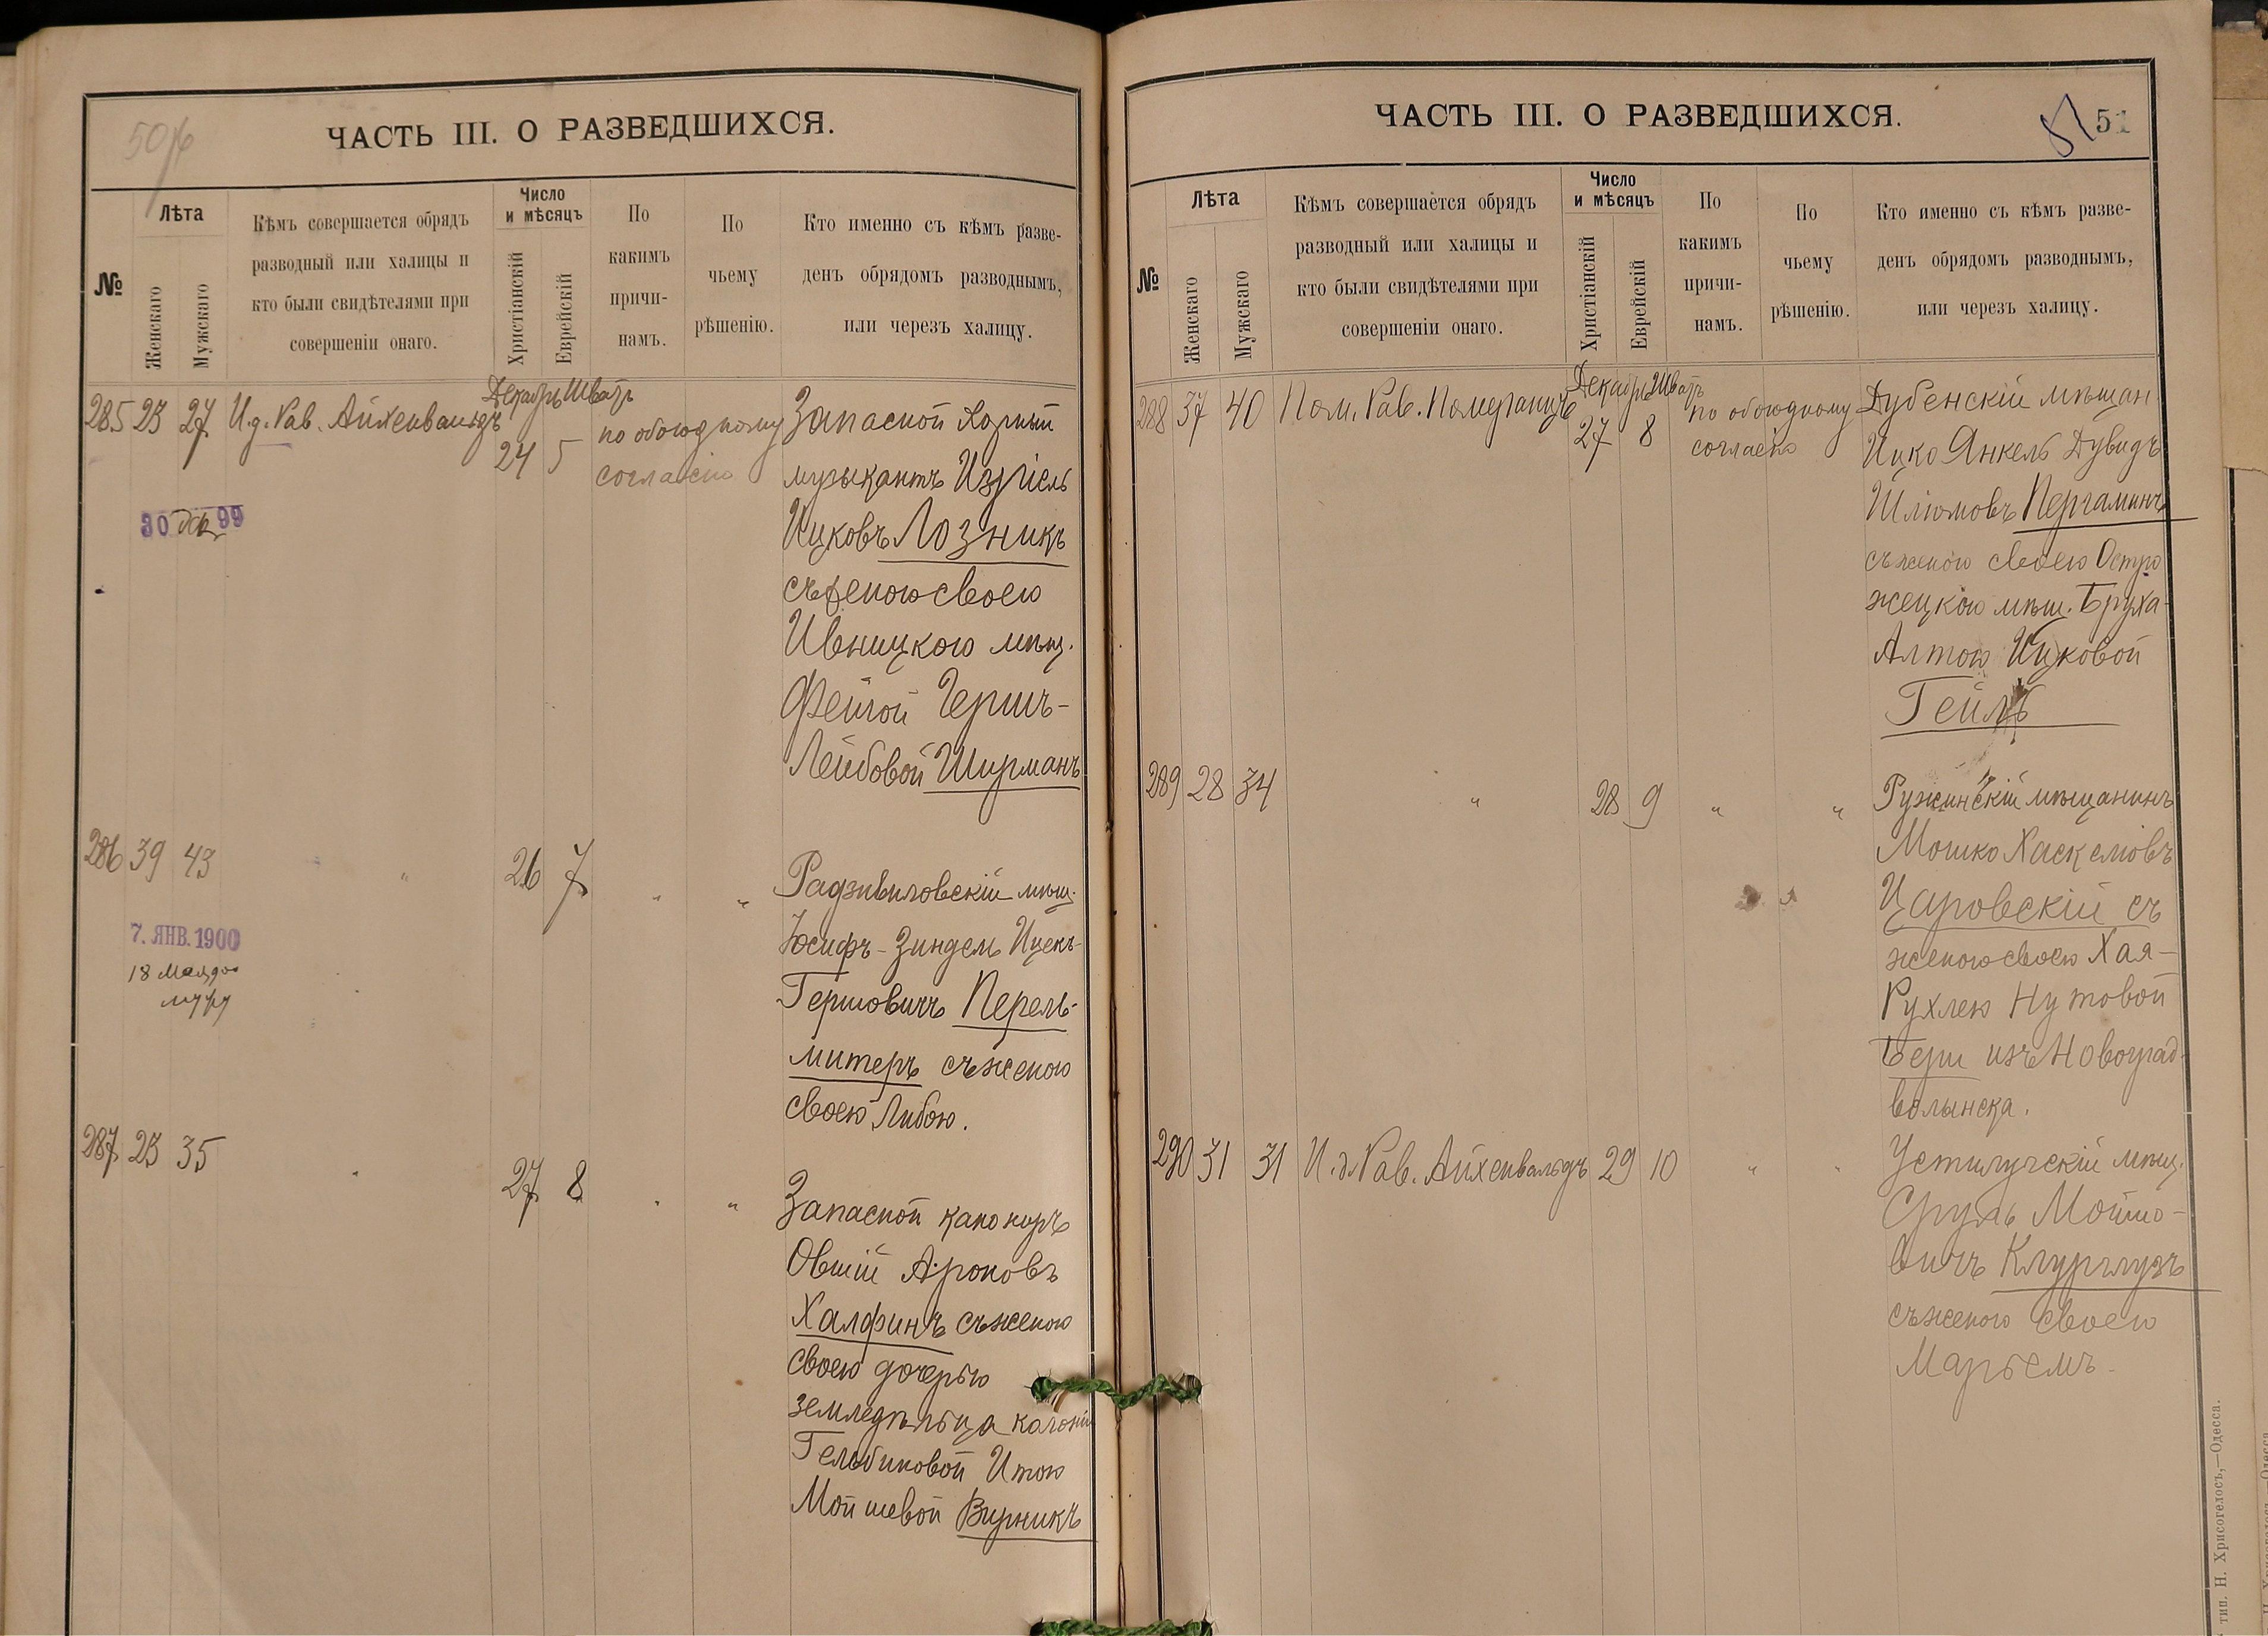 ЧАСТЬ III. О РАЗВЕДШИХСЯ.
№
Лѣта
Женскаго
Мужскаго
Кѣмъ совершается обрядъ
разводный или халицы и
кто были свидѣтелями при
совершеніи онаго.
Число
и мѣсяцъ
Христіанскій
Еврейскій
По
какимъ
причи-
намъ.
По
чьему
рѣшенію.
Кто именно съ кѣмъ разве-
денъ обрядомъ разводнымъ,
или черезъ халицу.
285 23 27 И.д. Рав. Айхенвальдъ
Декабрь Шватъ
24 5
по обоюдному
согласію
Запасной
музыкантъ
Ицковъ Лозникъ
съ женою своею
Ивницкою мѣщ.
Фейгой Герш-
Лейбовой Ширманъ
30 дек 99
286 39 43 " 26 7 " "
Радзивиловскій мѣщ.
Іосифъ-Зиндель Ицек-
Гершовичъ Перель-
митеръ съ женою
своею Либою.
7. ЯНВ. 1900
287 23 35 " 27 8 " "
Запасной канониръ
Овшій Ароновъ
Халфинъ съ женою
своею дочерью
земледѣльца колоніи
Итою
Мойшевой Вирникъ
ЧАСТЬ III. О РАЗВЕДШИХСЯ.
51 51
№
Лѣта
Женскаго
Мужскаго
Кѣмъ совершается обрядъ
разводный или халицы и
кто были свидѣтелями при
совершеніи онаго.
Число
и мѣсяцъ
Христіанскій
Еврейскій
По
какимъ
причи-
намъ.
По
чьему
рѣшенію.
Кто именно съ кѣмъ разве-
денъ обрядомъ разводнымъ,
или черезъ халицу.
288 37 40 Пом. Рав. Померанцъ
Декабрь Шватъ
27 8
по обоюдному
согласію
Дубенскій мѣщан
Ицко Янкель Дувидъ
Шлюмовъ Пергаминъ
съ женою своею Остро
жецкою мѣщ. Бруха-
Алтою Ицковой
289 28 34 " 28 9 " "
Ружинскій мѣщанинъ
Мошко Хаскелювъ
Царовскій съ
женою своею Хая-
Рухлею Нутовой
изъ Новоград-
волынска.
290 31 31 И.д. Рав. Айхенвальдъ 29 10 " "
Устилугскій мѣщ.
Сруль Мошко-
вичъ
съ женою своею
Марьемъ
тип. Н. Хрисогелосъ,—Одесса.